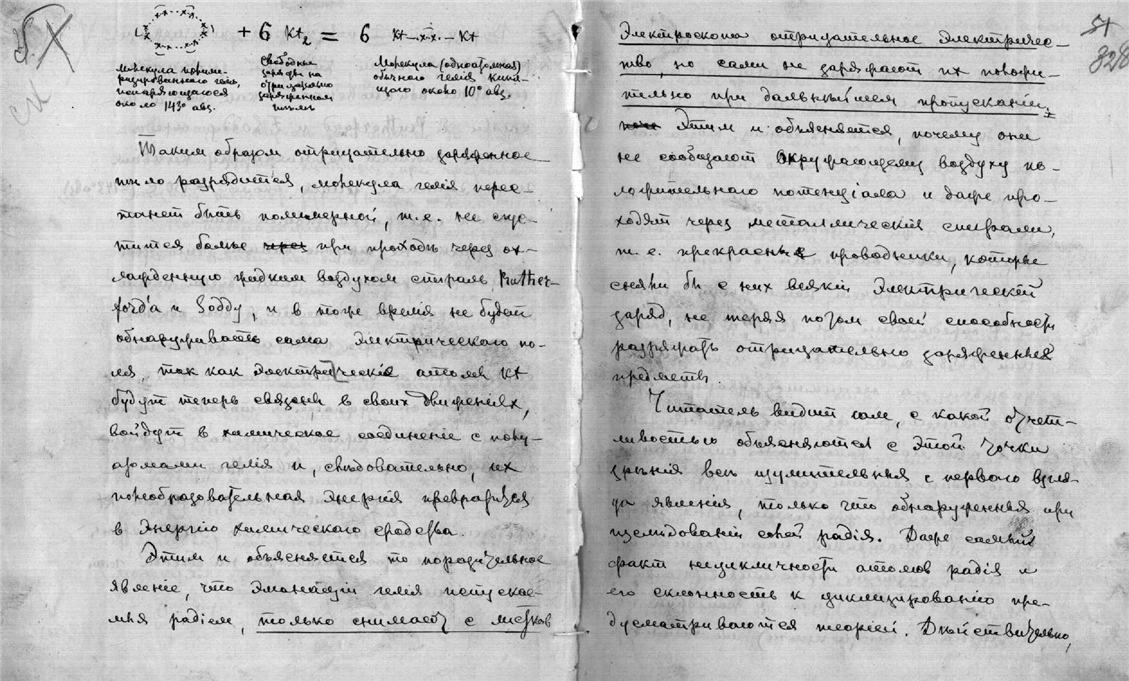 + 6 Kt₂ = 6 Kt-..x-x..-Kt
Молекула полиме-
ризированного гелія,
испаряющагося
около 143° абс.
Свободные
заряды на
отрицательно
заряженном
тѣлѣ
Молекула (одноатомная)
обычного гелія кипя-
щаго около 10° абс.
Такимъ образом отрицательно заряженное
тѣло разрядится, молекула гелія перес-
танет быть полимерной, т.е. не сгус-
тится больше при проходѣ через ох-
лажденную жидким воздухом спираль Ruther-
ford'a и Soddy, и в тоже время не будет
обнаруживать сама электрического по-
ля, так как электрическіе атомы Kt
будут теперь связаны в своих движеніях,
войдут в химическое соединеніе с полу-
атомами гелія и, слѣдовательно, их
преобразовательная энергія превратится
в энергію химического сродства.
Этим и объясняется то поразительное
явленіе, что эманаціи гелія испускае-
мыя радіем, только снимают с листков
51
328
Электроскопа отрицательное электричес-
тво, но сами не заряжают их положи-
тельно при дальнѣйшем пропусканіи.
Этим и объясняется, почему они
не сообщают окружающему воздуху по-
ложительного потенціала и даже про-
ходят через металлическія спирали,
т.е. прекрасные проводники, которые
сняли бы с них всякій электрическій
заряд, не теряя потом своей способности
разряжать отрицательно заряженные
предметы.
Читатель видит сам, с какой отчет-
ливостью объясняются с этой точки
зрѣнія всѣ изумительныя с первого взгля-
да явленія, только что обнаруженныя при
изслѣдованіи солей радія. Даже самый
факт нецикличности атомов радія и
его склонность к циклизированію пре-
дусматриваются теоріей. Дѣйствительно,